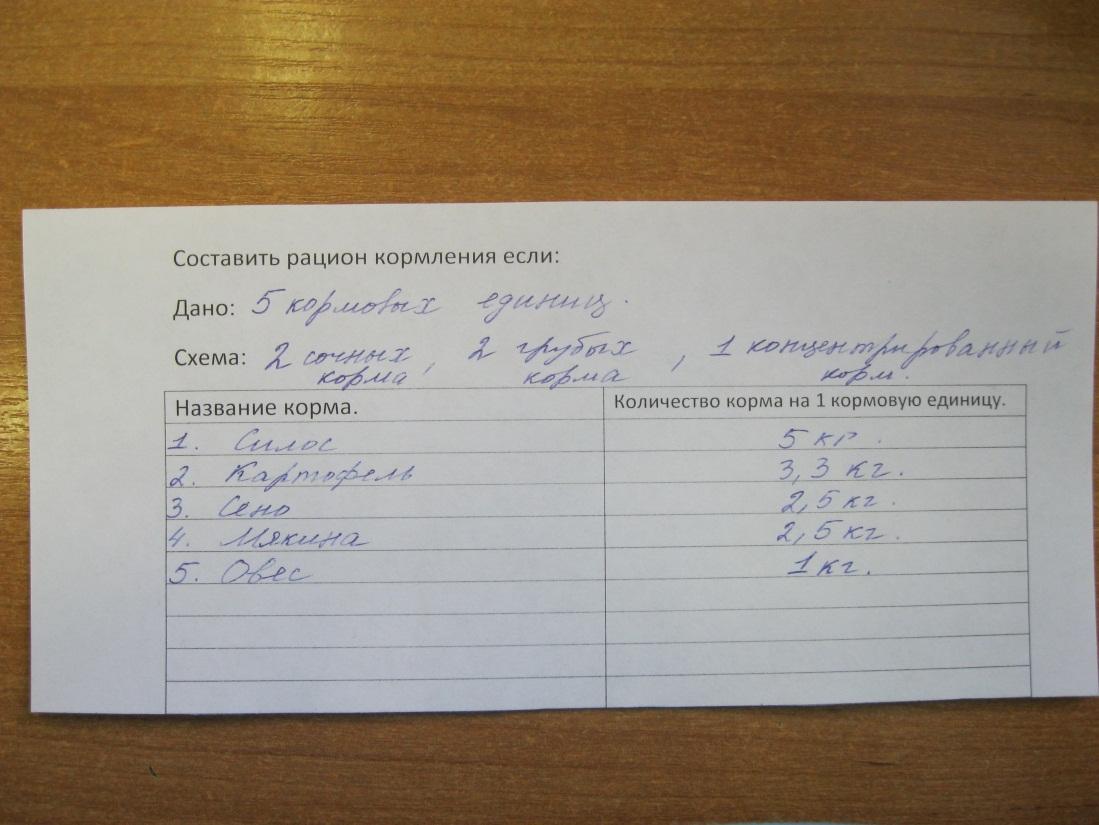 Составить рацион кормления если:
Дано: 5 кормовых единиц.
Схема: 2 сочных корма, 2 грубых корма, 1 концентрированный корм.
Название корма. Количество корма на 1 кормовую единицу.
1. Силос 5 кг.
2. Картофель 3,3 кг.
3. Сено 2,5 кг.
4. Мякина 2,5 кг.
5. Овес 1 кг.